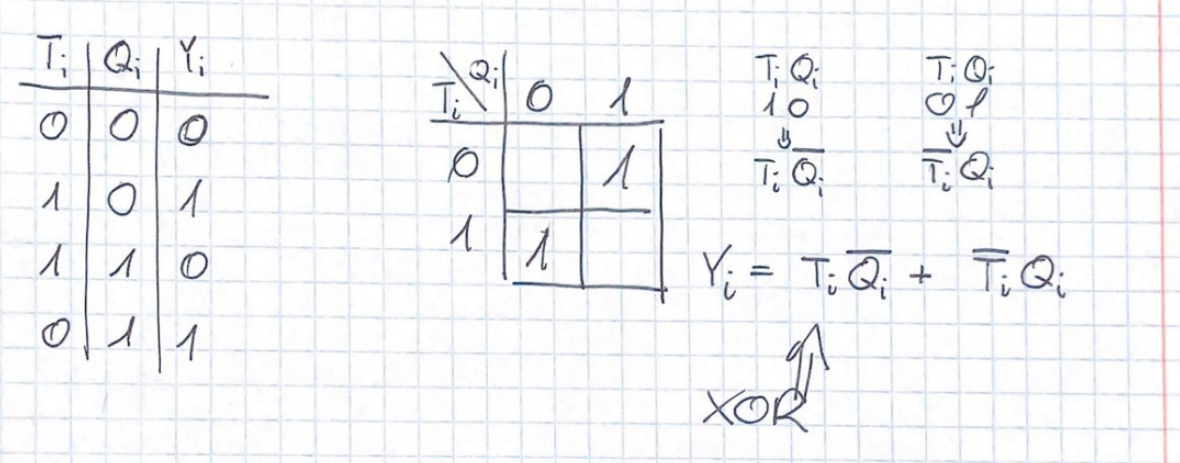 Ti Qi Yi
0 0 0
1 0 1
1 1 0
0 1 1
Ti \ Qi 0 1
0 1
1 1
Ti Qi
1 0
⇓
Ti Q̅i
Ti Qi
0 1
⇓
T̅i Qi
Yi = Ti Q̅i + T̅i Qi
XOR